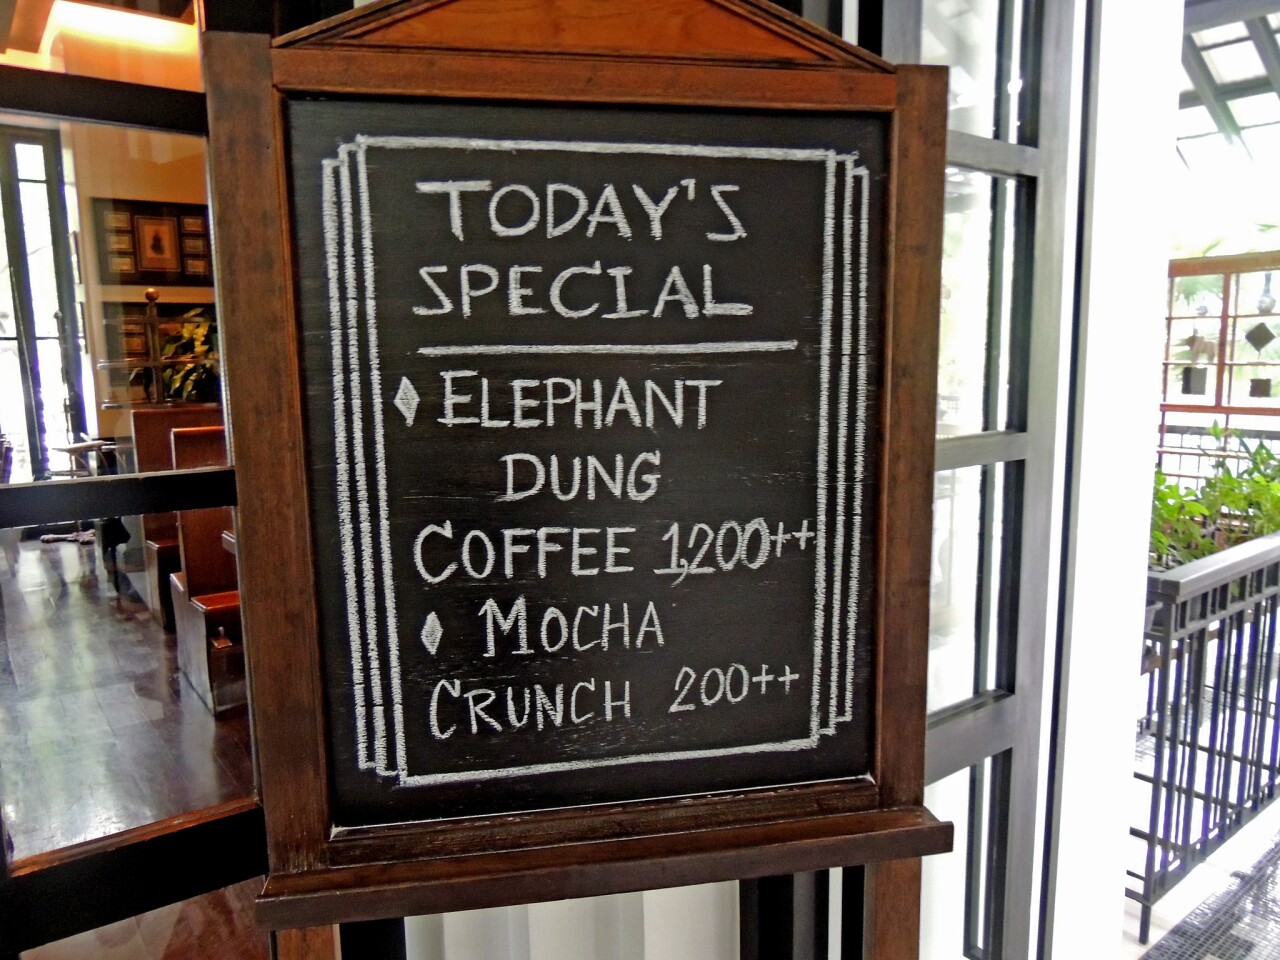 TODAY'S
SPECIAL
ELEPHANT
DUNG
COFFEE 1,200++
MOCHA
CRUNCH 200++